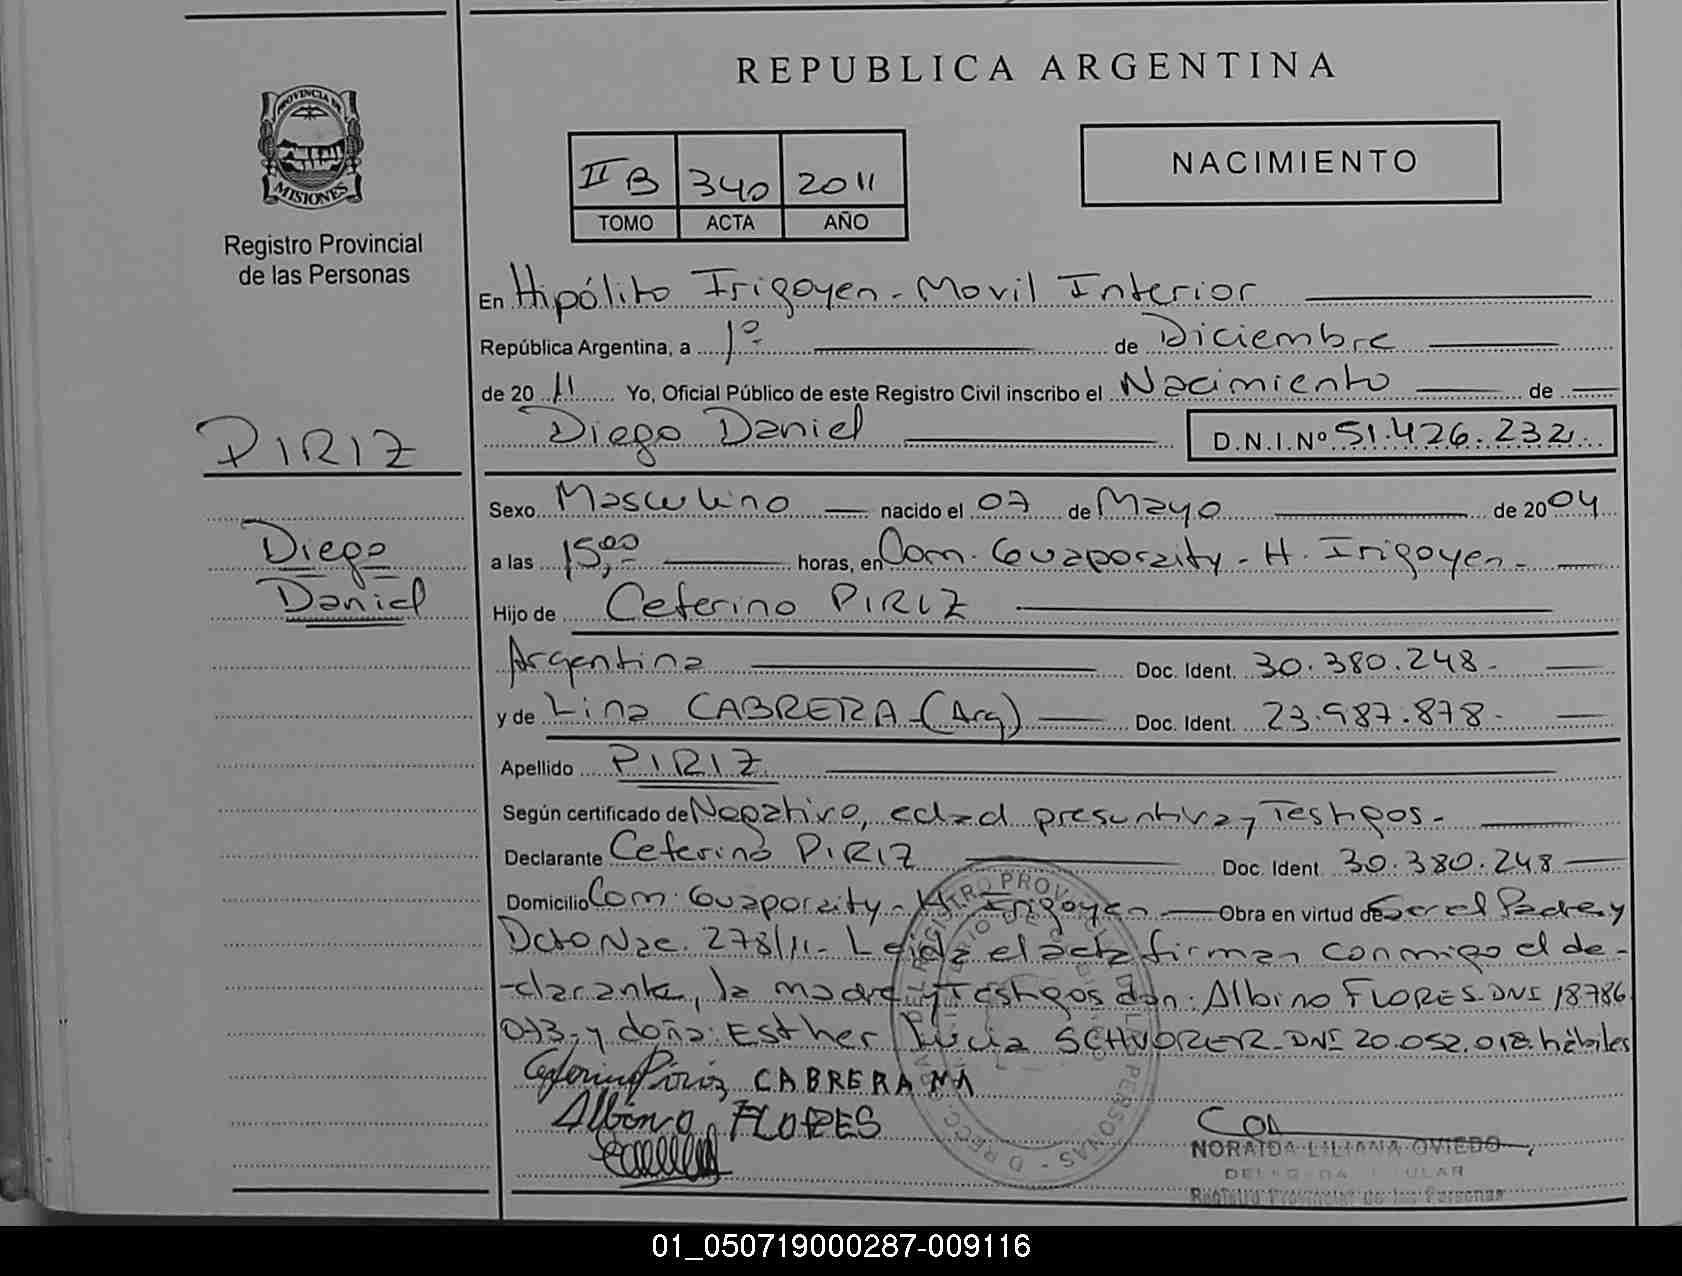 REPUBLICA ARGENTINA
PROVINCIA DE
MISIONES
Registro Provincial
de las Personas
II B 340 2011
TOMO ACTA AÑO
NACIMIENTO
En Hipólito Irigoyen - Movil Interior
República Argentina, a 1º de Diciembre
de 2011 Yo, Oficial Público de este Registro Civil inscribo el Nacimiento de
PIRIZ
Diego Daniel D.N.I.Nº 51.426.232
Diego
Daniel
Sexo Masculino nacido el 07 de Mayo de 2004
a las 15,00 horas, en Com. Guaporaity - H. Irigoyen -
Hijo de Ceferino PIRIZ
Argentina Doc. Ident. 30.380.248 -
y de Lina CABRERA - (Arg) Doc. Ident. 23.987.878 -
Apellido PIRIZ
Según certificado de Negativo, edad presuntiva y Testigos -
Declarante Ceferino PIRIZ Doc. Ident. 30.380.248
Domicilio Com. Guaporaity - H. Irigoyen Obra en virtud de Ser el Padre y
Dcto Nac. 278/11 - Leida el acta firman conmigo el de-
-clarante, la madre y Testigos don: Albino FLORES - DNI 18.786.
073 - y doña: Esther Lucia SCHVORER - DNI 20.052.018. hábiles
Ceferino Piriz CABRERA NA
Albino FLORES
NORAIDA LILIANA OVIEDO
DELEGADA TITULAR
Registro Provincial de las Personas
01_050719000287-009116